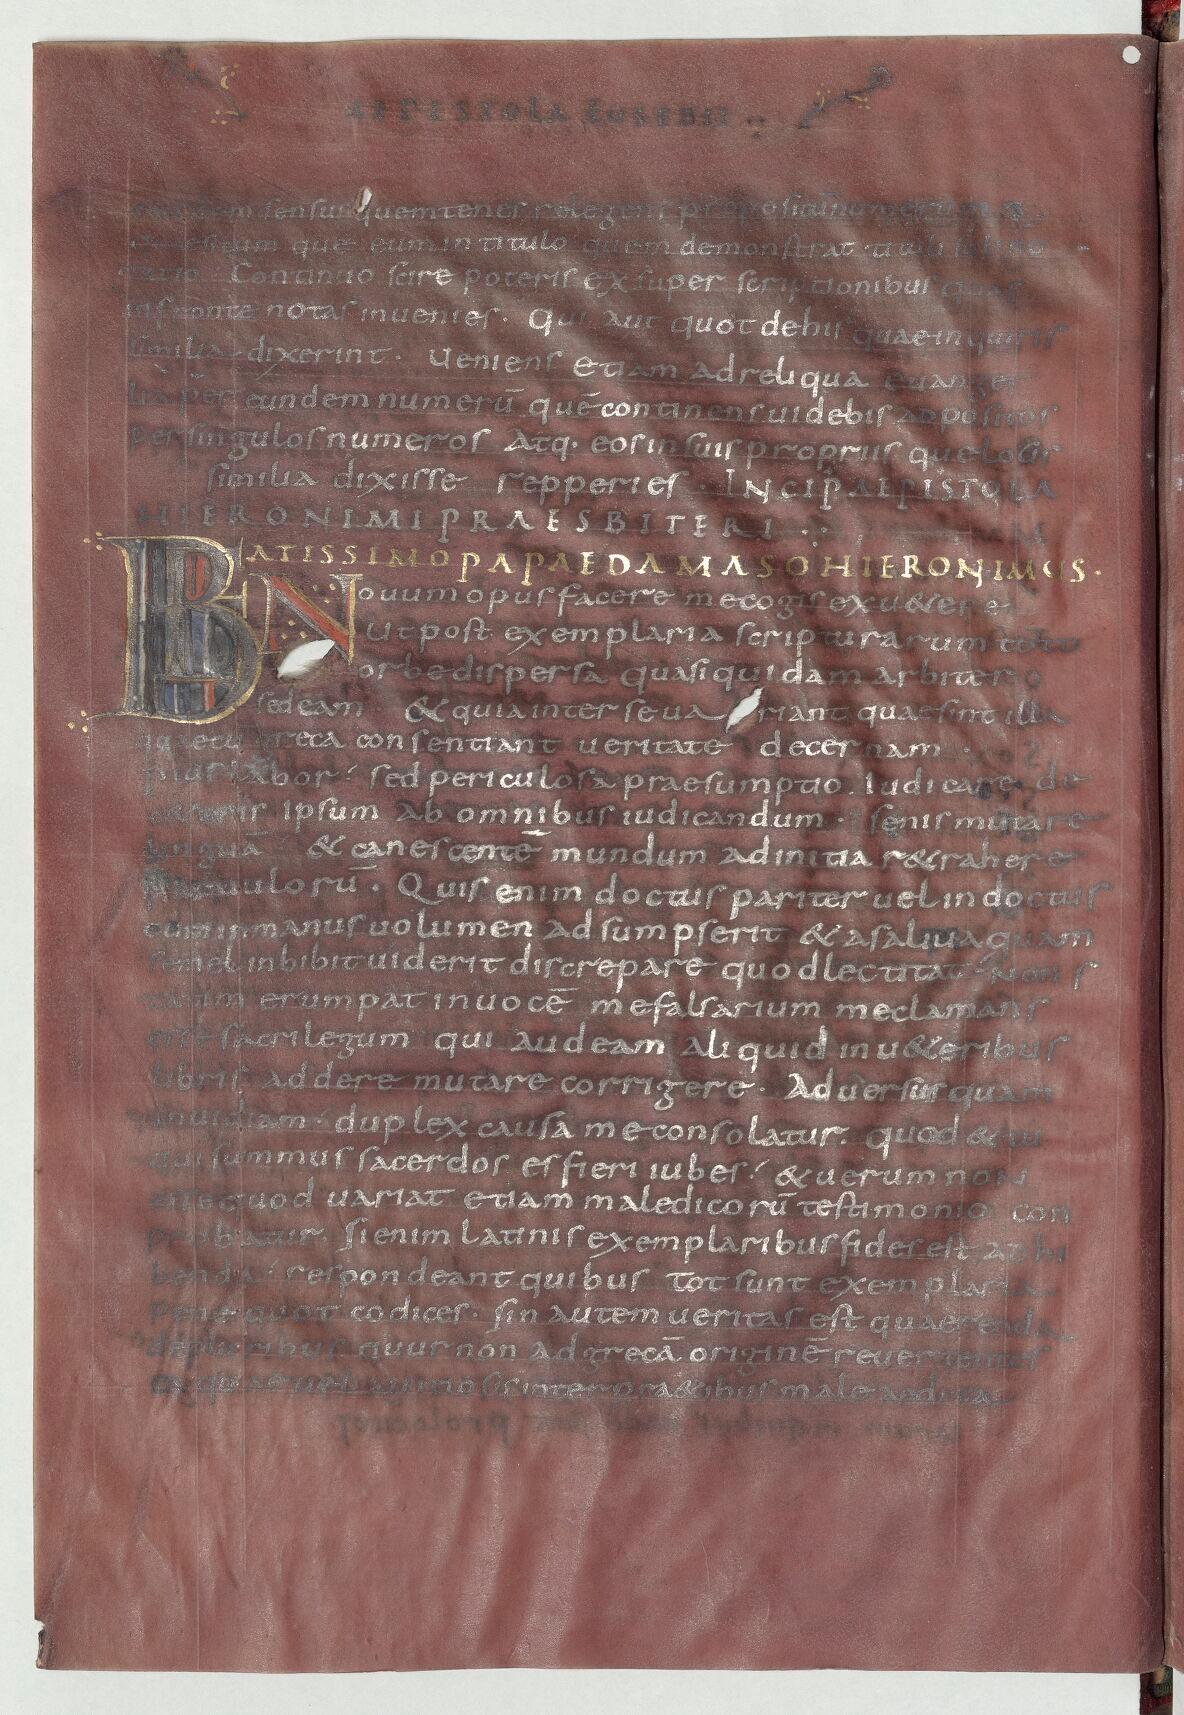 AEPISTOLA EUSEBII
sensu quem tenes relegens
que eum in titulo quem demonstrat tituli
tatio Continuo scire poteris ex super scriptionibus quas
infronte notas inuenies. Qui aut quot dehis quaeinquiris
similia dixerint. Ueniens Etiam ad reliqua euange
lia per eundem numerū quē continens uidebis adpositos
per singulos numeros Atq. eos in suis propriis que locis
similia dixisse repperies. INCIP AEPISTOLA
HIERONIMI PRAESBITERI
BATISSIMO PAPAE DAMASO HIERONIMUS.
Nouum opus facere me cogis ex u&ere
Ut post exemplaria scripturarum toto
orbe dispersa quasi quidam arbiter
sedeam & quia inter se uariant quae sint illa
quae cū greca consentiant ueritate decernam.
pius labor. sed periculosa praesumptio. Iudicare de
c&eris Ipsum ab omnibus iudicandum. Senis mutare
linguā & canescentē mundum ad initia r&rahere
paruulorū. Quis enim doctus pariter uel indoctus
cum inmanus uolumen adsumpserit & asaliua quam
semel inbibit uiderit discrepare quod lectitat Non s
tatim erumpat in uocē me falsarium me clamans
esse sacrilegum qui audeam aliquid in u&eribus
libris addere mutare corrigere. Aduersus quam
inuidiam. duplex causa me consolatur. quod & tu
qui summus sacerdos es fieri iubes. & uerum non
esse quod uariat etiam maledicorū testimonio con
probatur. Si enim latinis exemplaribus fides est adhi
benda. respondeant quibus Tot sunt exemplaria
pene quot codices. Sin autem ueritas est quaerenda
de pluribus cur non ad grecā originē reuertentes
ea quae uel a uitiosis interpr&ibus male aedita